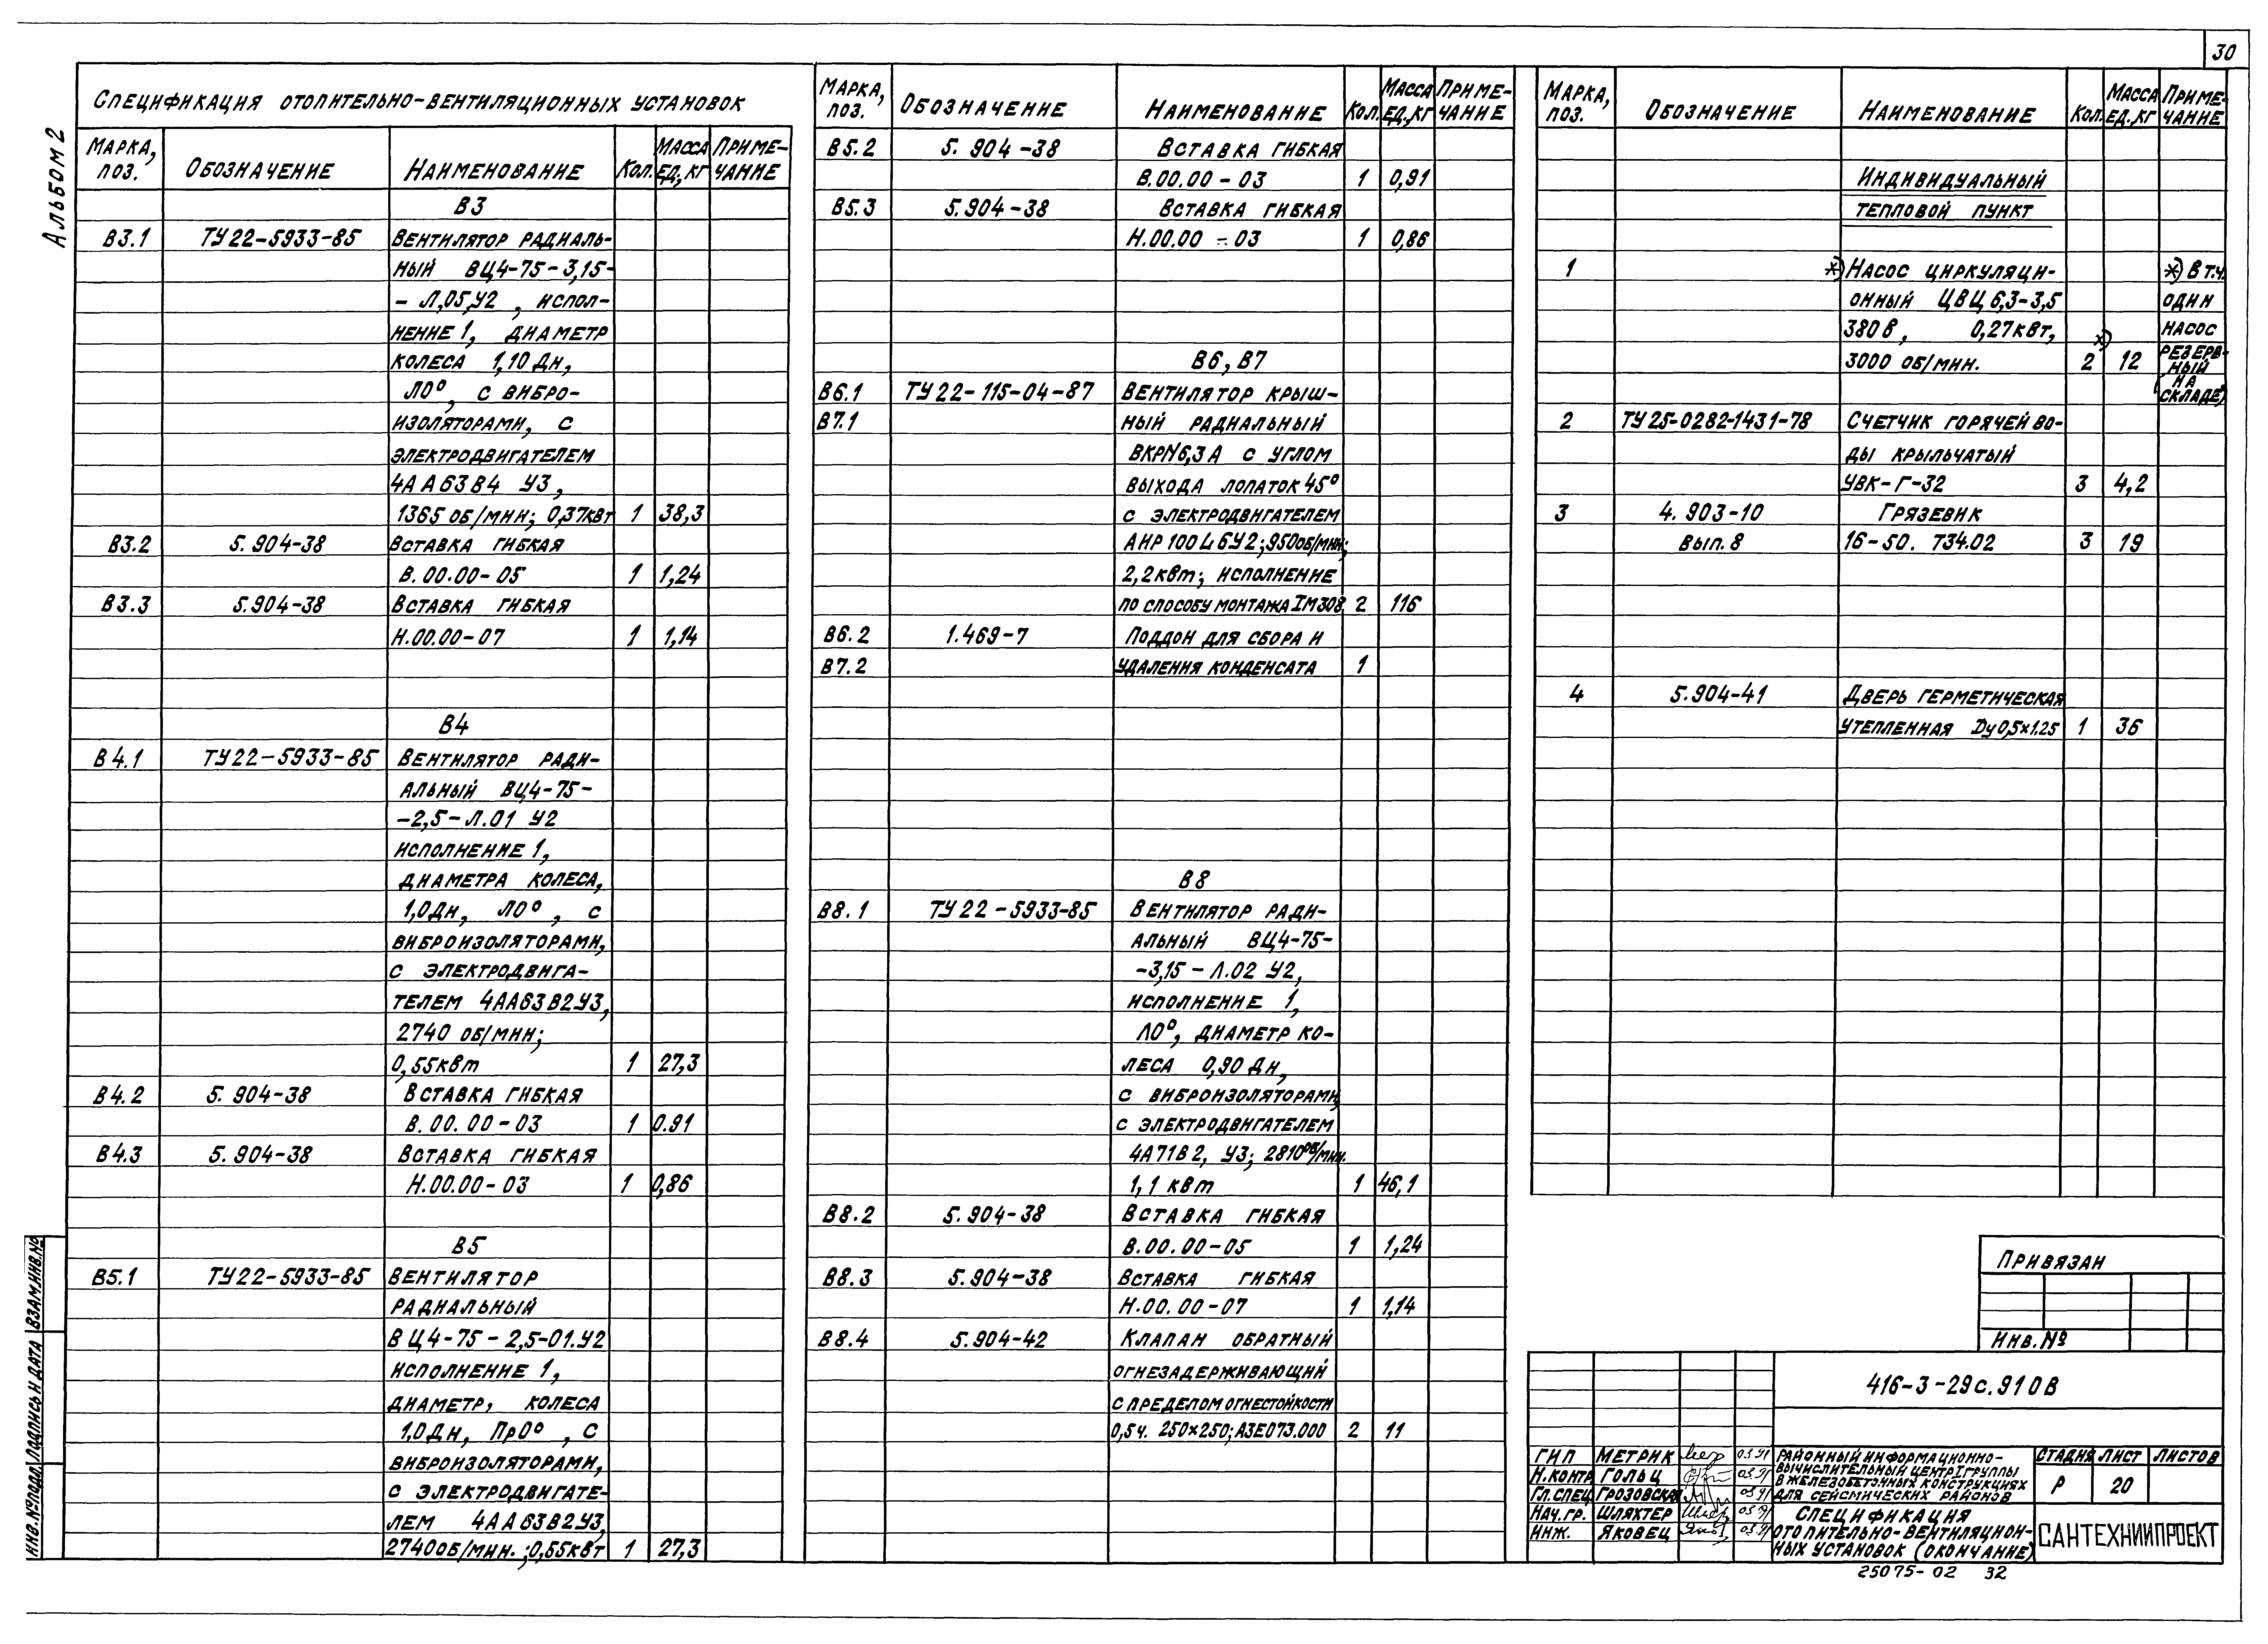 30
Альбом 2
Спецификация отопительно-вентиляционных установок
Марка, поз. Обозначение Наименование Кол. Масса ед, кг Приме-чание
В3
В3.1 ТУ22-5933-85 Вентилятор радиаль-
ный ВЦ4-75-3,15-
- Л,05,У2 , испол-
нение 1, диаметр
колеса 1,10 Дн,
Л0°, с вибро-
изоляторами, с
электродвигателем
4АА63В4 У3,
1365 об/мин; 0,37квт 1 38,3
В3.2 5.904-38 Вставка гибкая
В.00.00-05 1 1,24
В3.3 5.904-38 Вставка гибкая
Н.00.00-07 1 1,14
В4
В4.1 ТУ22-5933-85 Вентилятор ради-
альный ВЦ4-75-
-2,5-Л.01 У2
исполнение 1,
диаметра колеса,
1,0Дн, Л0°, с
виброизоляторами,
с электродвига-
телем 4АА63В2У3,
2740 об/мин;
0,55квт 1 27,3
В4.2 5.904-38 Вставка гибкая
В.00.00-03 1 0.91
В4.3 5.904-38 Вставка гибкая
Н.00.00-03 1 0,86
В5
В5.1 ТУ22-5933-85 Вентилятор
радиальный
ВЦ4-75-2,5-01.У2
исполнение 1,
диаметр, колеса
1,0Дн, Пр0°, с
виброизоляторами,
с электродвигате-
лем 4АА63В2У3,
2740об/мин.;0,55квт 1 27,3
Марка, поз. Обозначение Наименование Кол. Масса ед,кг Приме-чание
В5.2 5.904-38 Вставка гибкая
В.00.00-03 1 0,91
В5.3 5.904-38 Вставка гибкая
Н.00.00-03 1 0,86
В6, В7
В6.1 ТУ22-115-04-87 Вентилятор крыш-
В7.1 ный радиальный
ВКРN6,3А с углом
выхода лопаток 45°
с электродвигателем
АИР100L6У2;950об/мин;
2,2квт; исполнение
по способу монтажа IM308 2 116
В6.2 1.469-7 Поддон для сбора и
В7.2 удаления конденсата 1
В8
В8.1 ТУ22-5933-85 Вентилятор ради-
альный ВЦ4-75-
-3,15-Л.02 У2,
исполнение 1,
Л0°, диаметр ко-
леса 0,90 Дн,
с виброизоляторами,
с электродвигателем
4А71В2, У3; 2810об/мин.
1,1 квт 1 46,1
В8.2 5.904-38 Вставка гибкая
В.00.00-05 1 1,24
В8.3 5.904-38 Вставка гибкая
Н.00.00-07 1 1,14
В8.4 5.904-42 Клапан обратный
огнезадерживающий
с пределом огнестойкости
0,5ч. 250×250; АЗЕ073.000 2 11
Марка, поз. Обозначение Наименование Кол. Масса ед,кг Приме-чание
Индивидуальный
тепловой пункт
1 *) Насос циркуляци- *) в т.ч.
онный ЦВЦ 6,3-3,5 один
380в, 0,27квт, насос
3000 об/мин. *) 2 12 резерв-
ный
(на
складе)
2 ТУ25-0282-1431-78 Счетчик горячей во-
ды крыльчатый
УВК-Г-32 3 4,2
3 4.903-10 Грязевик
вып.8 16-50. Т34.02 3 19
4 5.904-41 Дверь герметическая
утепленная Dу0,5×1.25 1 36
Привязан
Инв.№
416-3-29с.910В
ГИП Метрик 03.91
Н.контр Гольц 03.91
Гл.спец Грозовская 03.91
Нач.гр. Шляхтер 03.91
Инж. Яковец 03.91
Районный информационно-
вычислительный центр I группы
в железобетонных конструкциях
для сейсмических районов
Стадия Лист Листов
Р 20
Спецификация
отопительно-вентиляцион-
ных установок (окончание)
САНТЕХНИИПРОЕКТ
25075-02 32
Инв.№подл. Подпись и дата Взам.инв.№